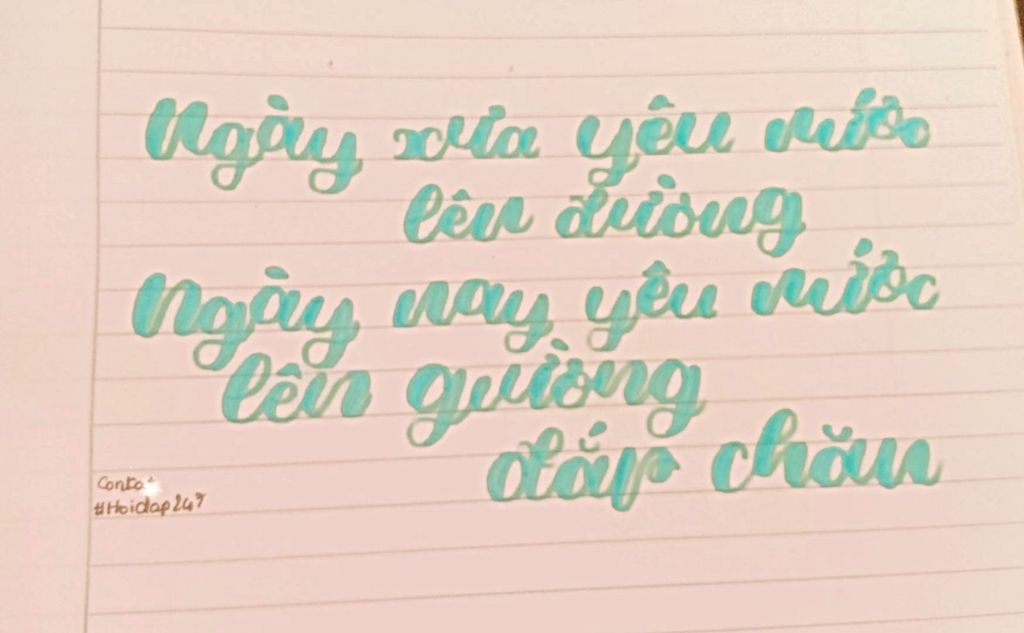 Ngày xưa yêu nước
lên đường
Ngày nay yêu nước
lên giường
đắp chăn
#Hoidap247